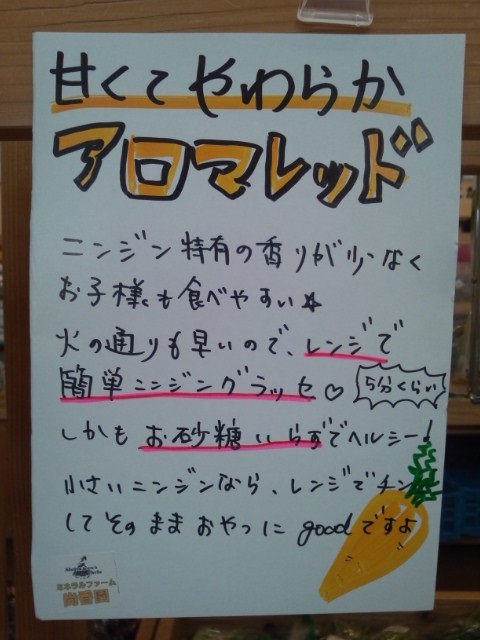 甘くてやわらか
アロマレッド
ニンジン特有の香りが少なく
お子様も食べやすい☆
火の通りも早いので、レンジで
簡単ニンジングラッセ♡ 5分くらい
しかもお砂糖いらずでヘルシー!
小さいニンジンなら、レンジでチン
してそのままおやつにgoodですよ
ミネラルファーム